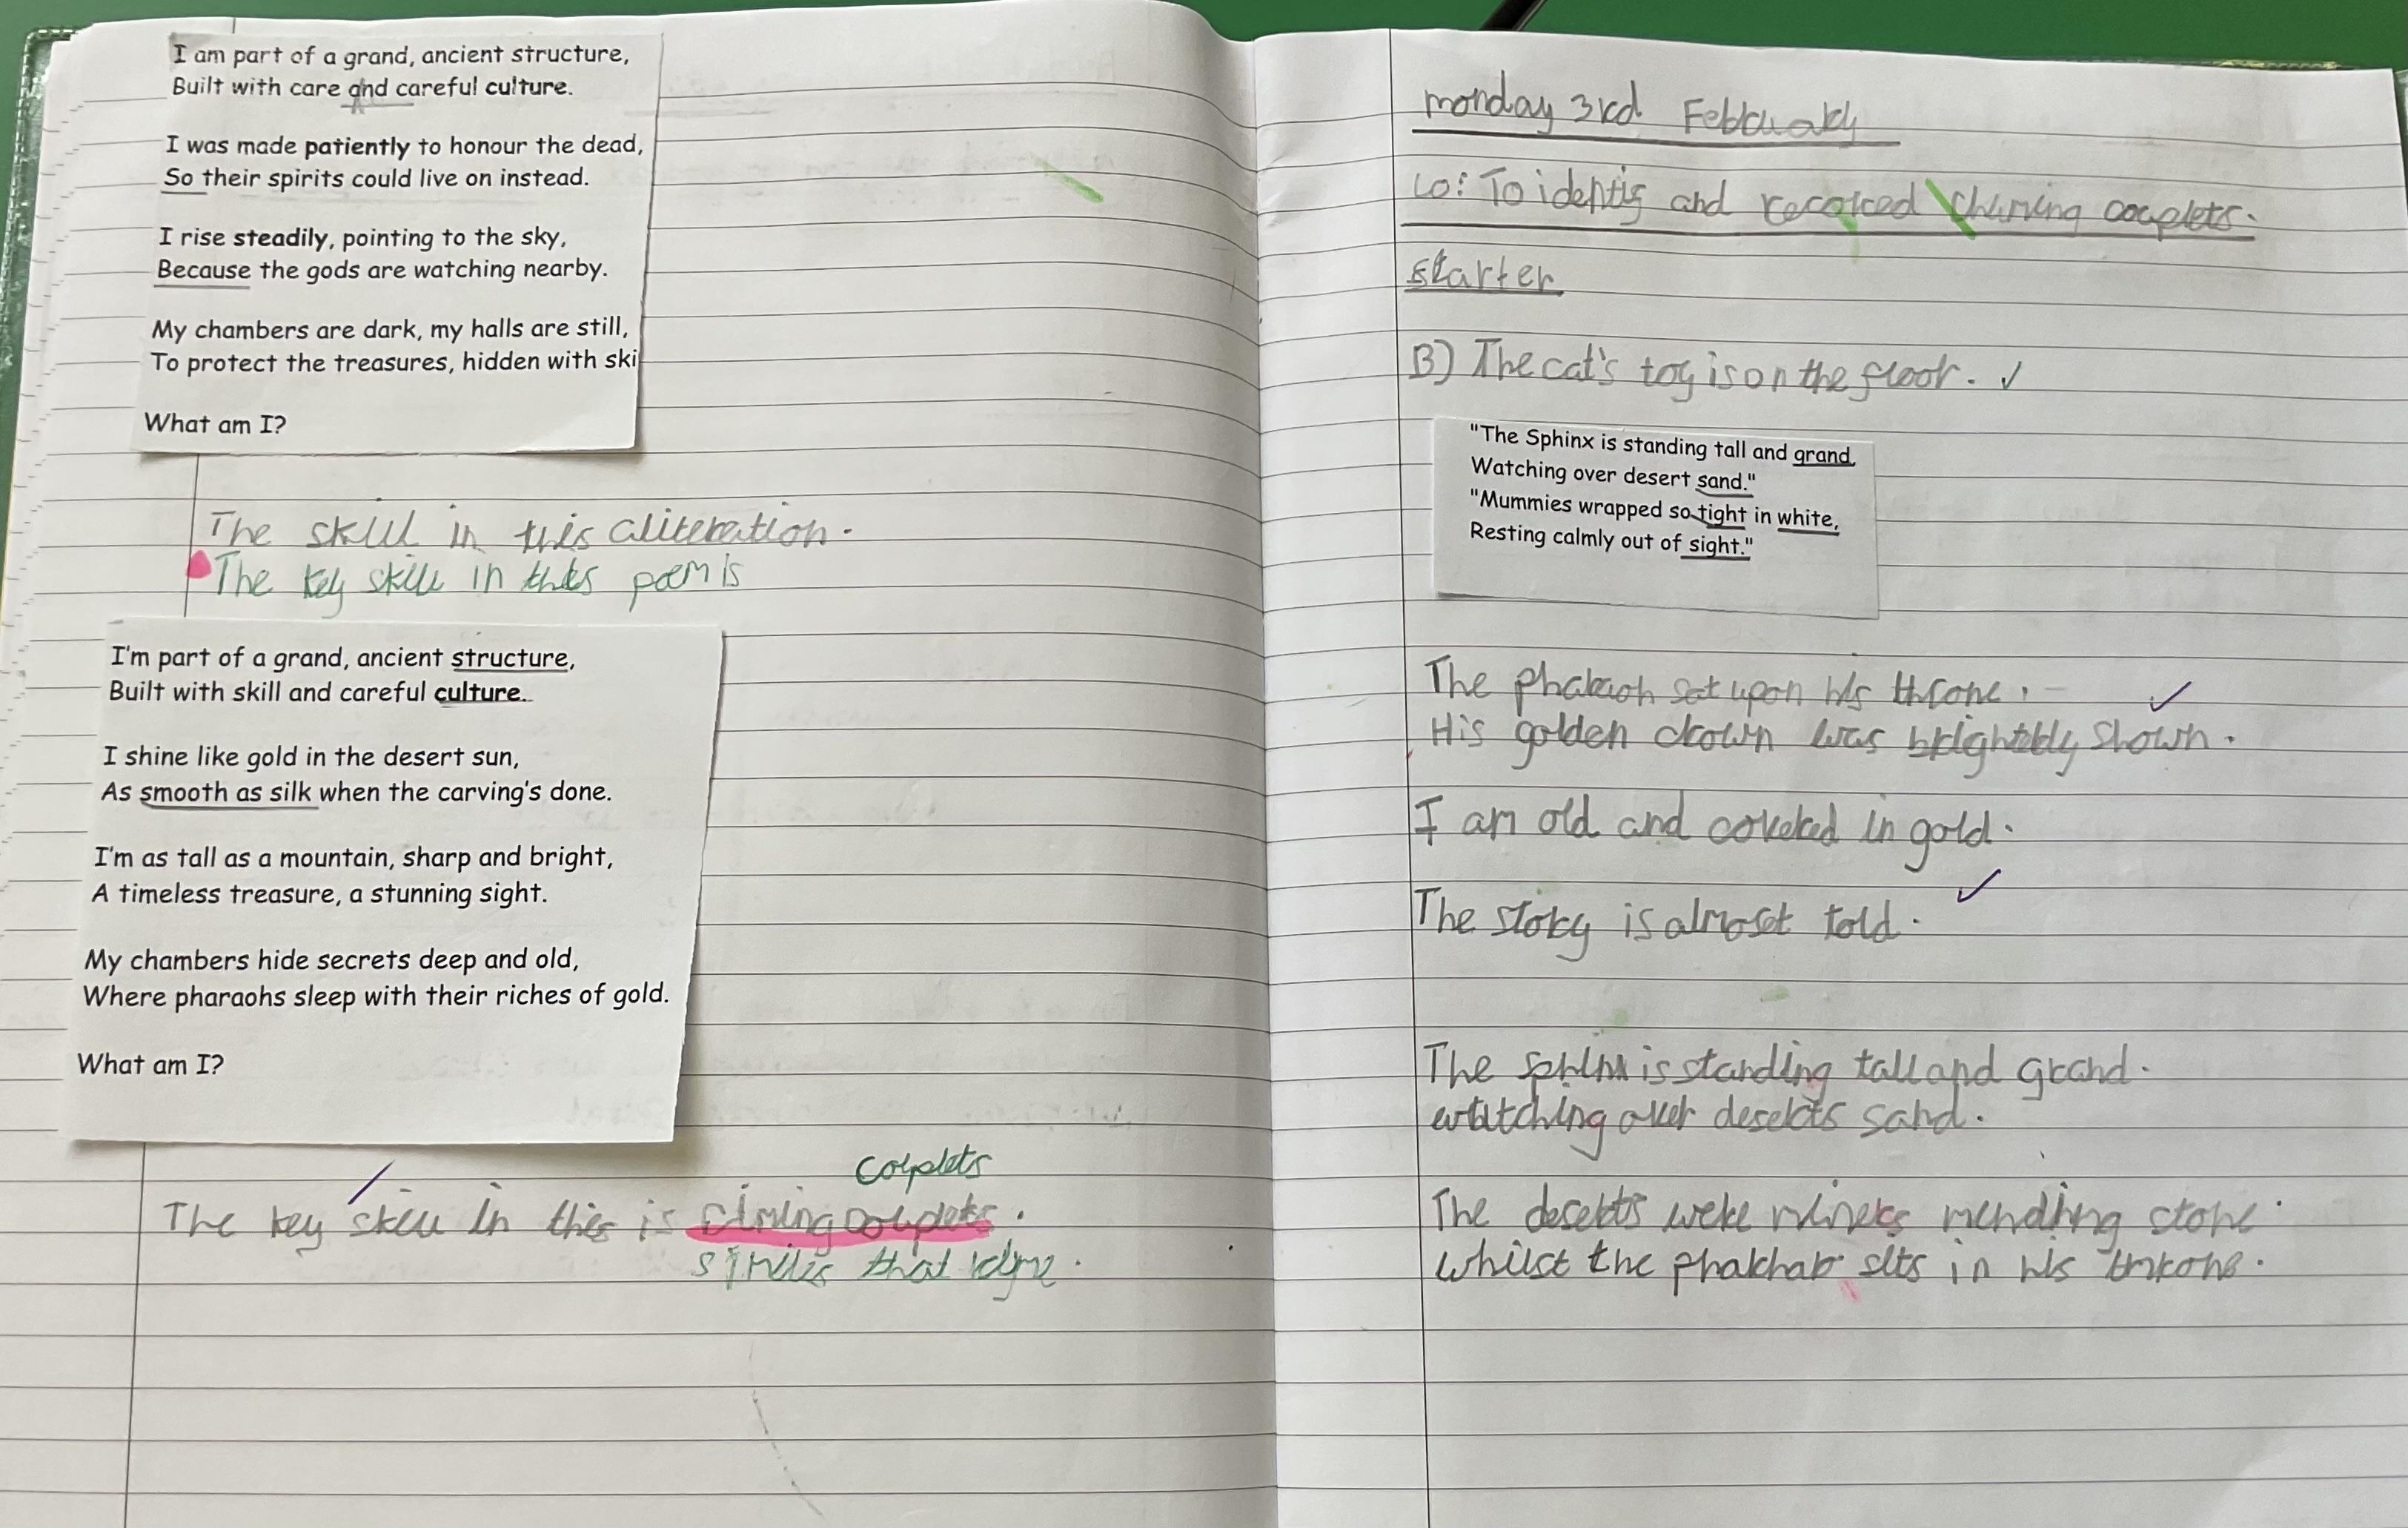 I am part of a grand, ancient structure,
Built with care and careful culture.
I was made patiently to honour the dead,
So their spirits could live on instead.
I rise steadily, pointing to the sky,
Because the gods are watching nearby.
My chambers are dark, my halls are still,
To protect the treasures, hidden with ski
What am I?
The skill in this aliteration.
The key skill in this poem is
I'm part of a grand, ancient structure,
Built with skill and careful culture.
I shine like gold in the desert sun,
As smooth as silk when the carving's done.
I'm as tall as a mountain, sharp and bright,
A timeless treasure, a stunning sight.
My chambers hide secrets deep and old,
Where pharaohs sleep with their riches of gold.
What am I?
The key skill in this is
that
monday 3rd
LO: To and
starter
B) The cat's toy is on the floor. ✓
"The Sphinx is standing tall and grand,
Watching over desert sand."
"Mummies wrapped so tight in white,
Resting calmly out of sight."
The sat upon his throne.
His golden crown was shown.
I am old and covered in gold.
The story is almost told.
The sphinx is standing tall and grand.
over deserts sand.
The deserts were stone
whilst the sits in his